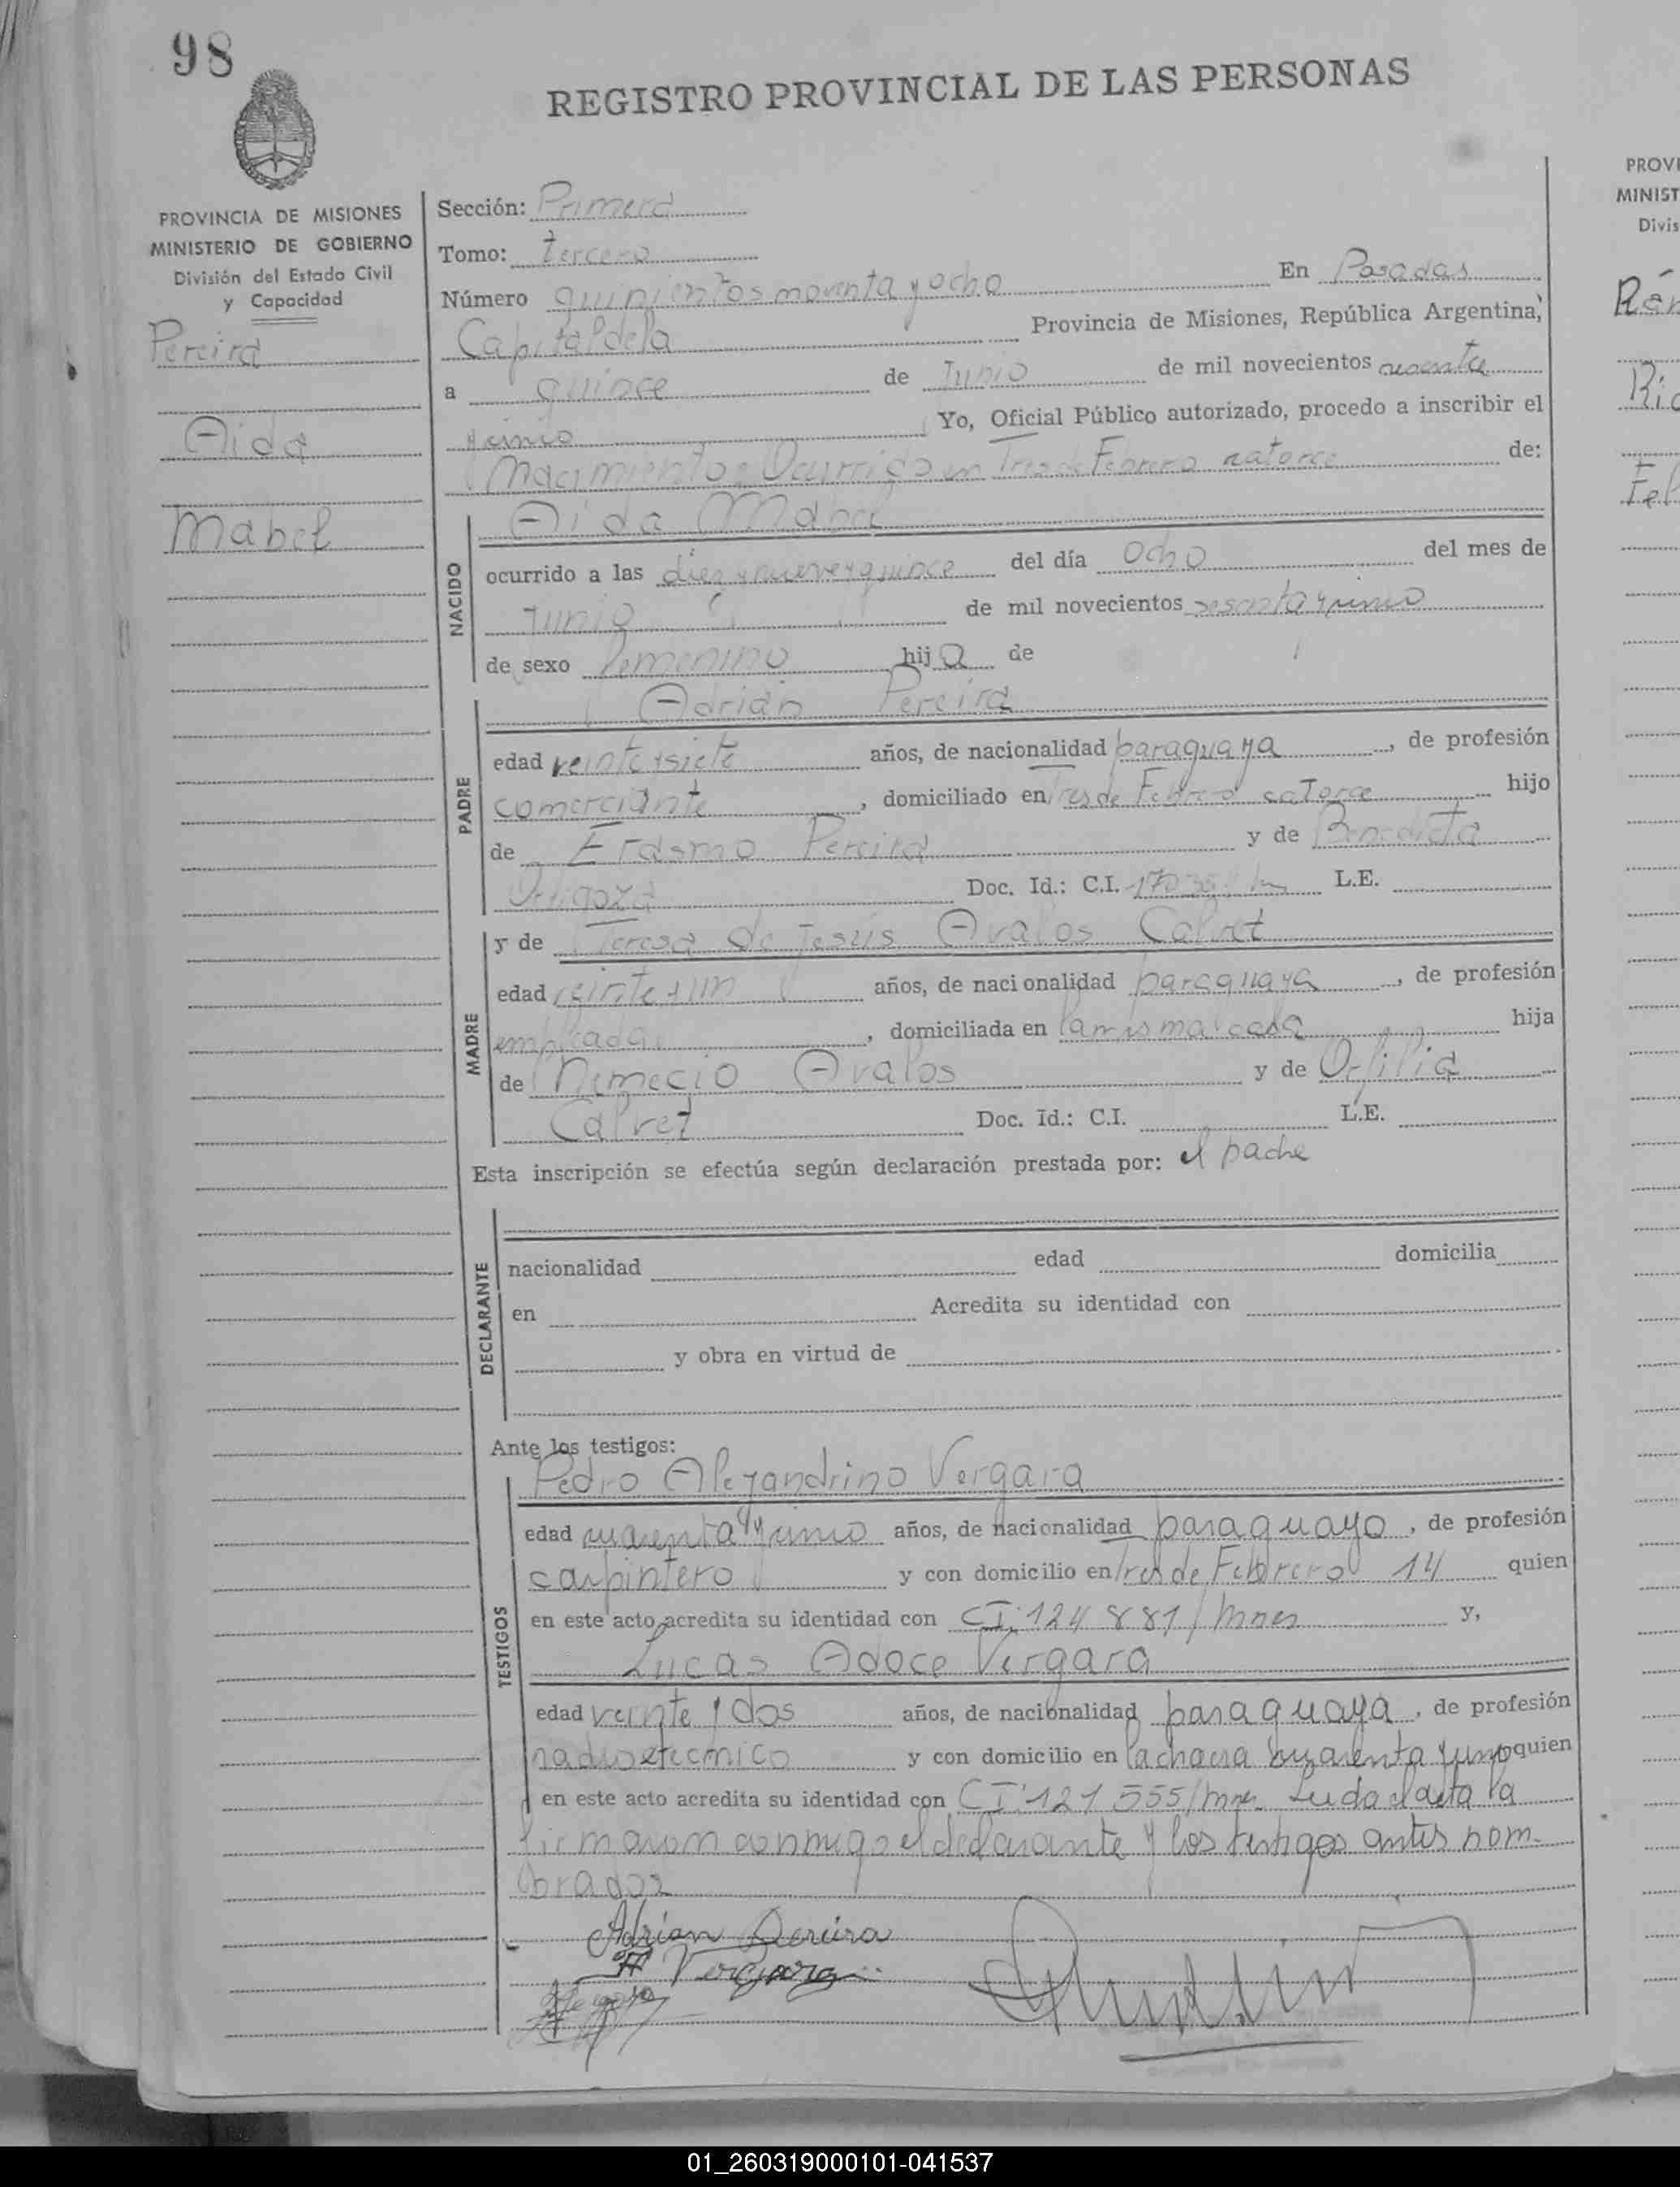 98
REGISTRO PROVINCIAL DE LAS PERSONAS
PROVINCIA DE MISIONES
MINISTERIO DE GOBIERNO
División del Estado Civil
y Capacidad
Pereira
Aida
Mabel
Sección: Primera
Tomo: tercero
Número quinientos noventa y ocho En Posadas
Capital de la Provincia de Misiones, República Argentina,
a quince de Junio de mil novecientos sesenta
y cinco Yo, Oficial Público autorizado, procedo a inscribir el
Nacimiento Ocurrido en Tres de Febrero catorce de:
NACIDO
Aida Mabel
ocurrido a las diez y nueve y quince del día Ocho del mes de
Junio de mil novecientos sesenta y cinco
de sexo femenino hija de
PADRE
Adrián Pereira
edad veinte y siete años, de nacionalidad paraguaya, de profesión
comerciante, domiciliado en Tres de Febrero catorce hijo
de Erasmo Pereira y de Benedicta
Doc. Id.: C.I. L.E.
MADRE
y de Teresa de Jesús Avalos Calvet
edad veinte y un años, de nacionalidad paraguaya, de profesión
empleada, domiciliada en la misma casa hija
de Nemecio Avalos y de Orfilia
Calvet Doc. Id.: C.I. L.E.
Esta inscripción se efectúa según declaración prestada por: el padre
DECLARANTE
nacionalidad edad domicilia
en Acredita su identidad con
y obra en virtud de
Ante los testigos:
TESTIGOS
Pedro Alejandrino Vergara
edad cuarenta y cinco años, de nacionalidad paraguayo, de profesión
carpintero y con domicilio en Tres de Febrero 14 quien
en este acto acredita su identidad con CI. 124 881/Mnes y,
Lucas Adoce Vergara
edad veinte y dos años, de nacionalidad paraguaya, de profesión
radiotecnico y con domicilio en la chacra cuarenta y uno quien
en este acto acredita su identidad con CI 121 555/Mnes. Leida el acta la
firmaron conmigo el declarante y los testigos antes nom-
brados
Adrian Pereira
Vergara
PROVI
MINIST
Divis
01_260319000101-041537